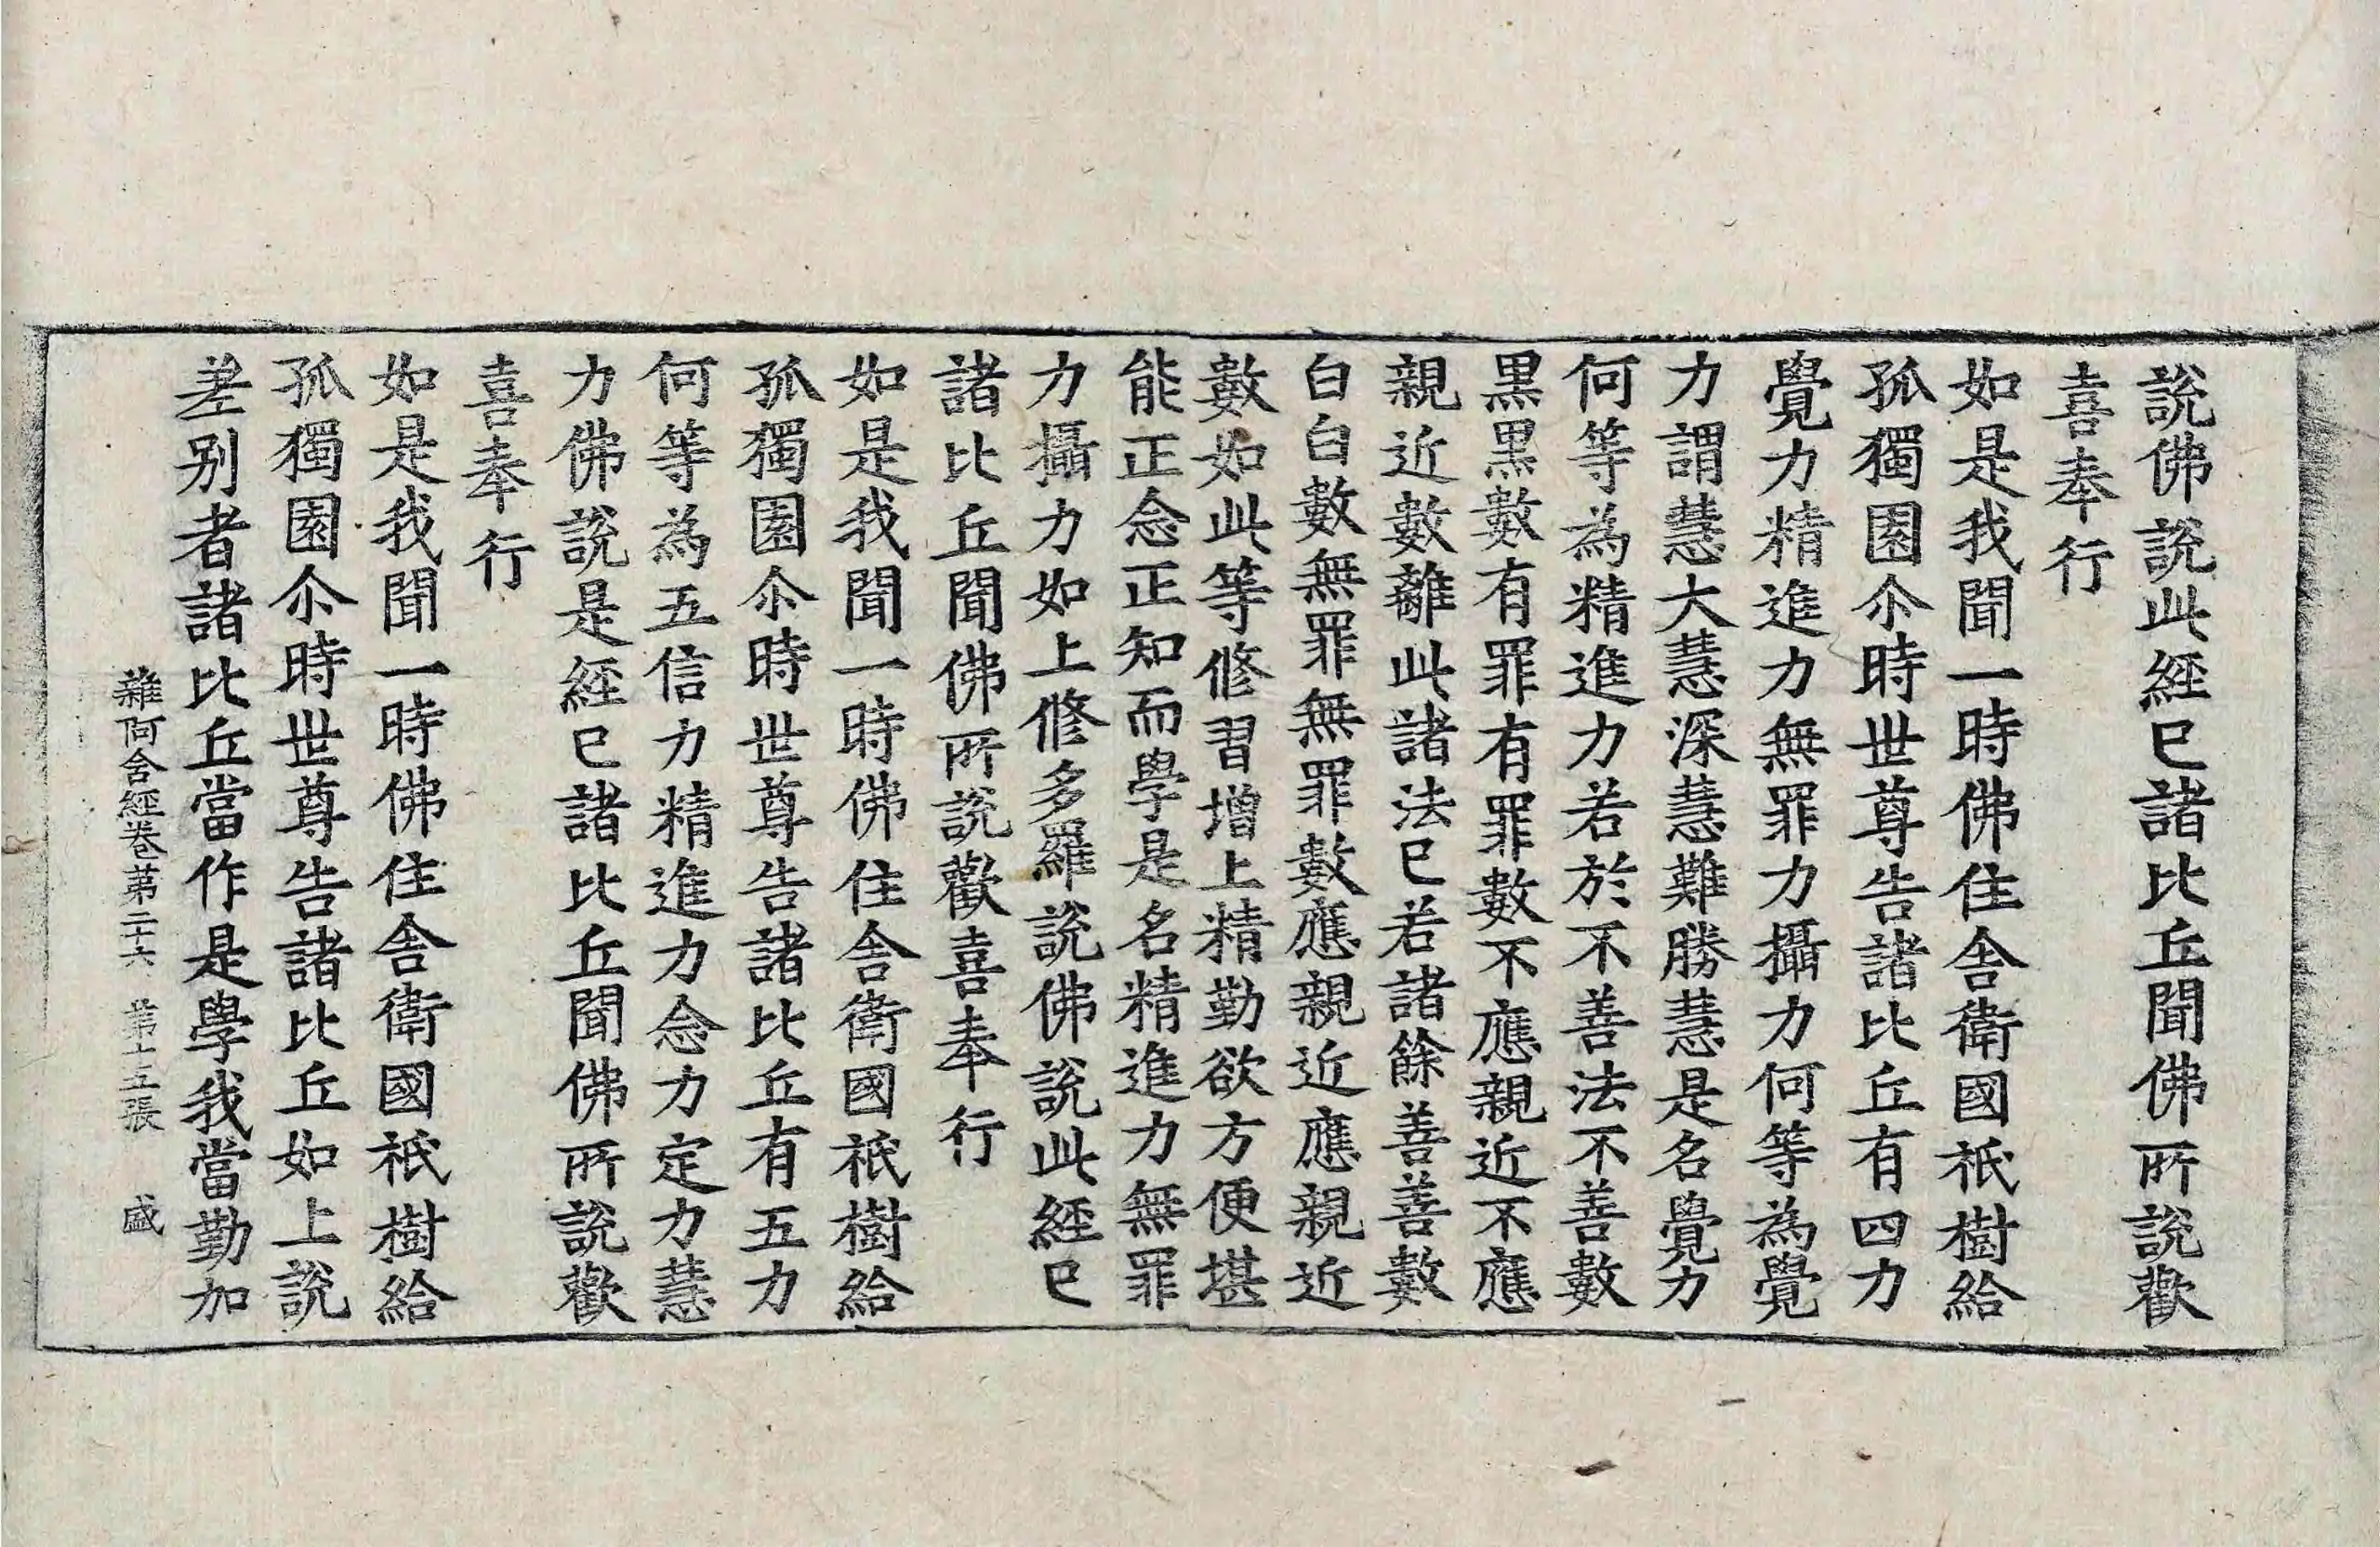 說佛說此經已諸比丘聞佛所說歡
喜奉行
如是我聞一時佛住舍衛國祇樹給
孤獨園尒時世尊告諸比丘有四力
覺力精進力無罪力攝力何等為覺
力謂慧大慧深慧難勝慧是名覺力
何等為精進力若於不善法不善數
黑黑數有罪有罪數不應親近不應
親近數離此諸法已若諸餘善善數
白白數無罪無罪數應親近應親近
數如此等修習增上精勤欲方便堪
能正念正知而學是名精進力無罪
力攝力如上修多羅說佛說此經已
諸比丘聞佛所說歡喜奉行
如是我聞一時佛住舍衛國祇樹給
孤獨園尒時世尊告諸比丘有五力
何等為五信力精進力念力定力慧
力佛說是經已諸比丘聞佛所說歡
喜奉行
如是我聞一時佛住舍衛國祇樹給
孤獨園尒時世尊告諸比丘如上說
差别者諸比丘當作是學我當勤加
雜阿含經卷第二十六 第十五張 盛